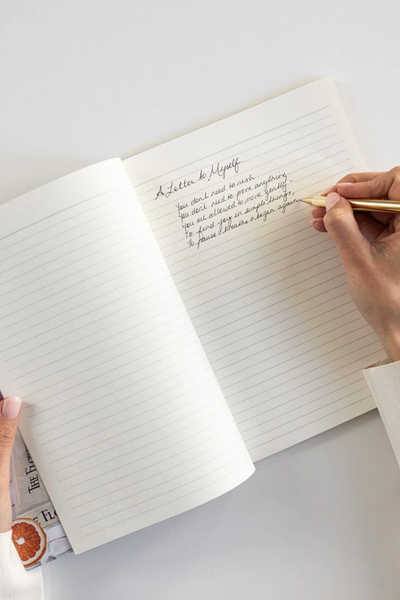 A Letter to Myself
You don't need to rush
You don't need to prove anything.
You are allowed to move gently.
To find joy in simple things,
To pause, breathe & begin again
THE FLO
E FLO